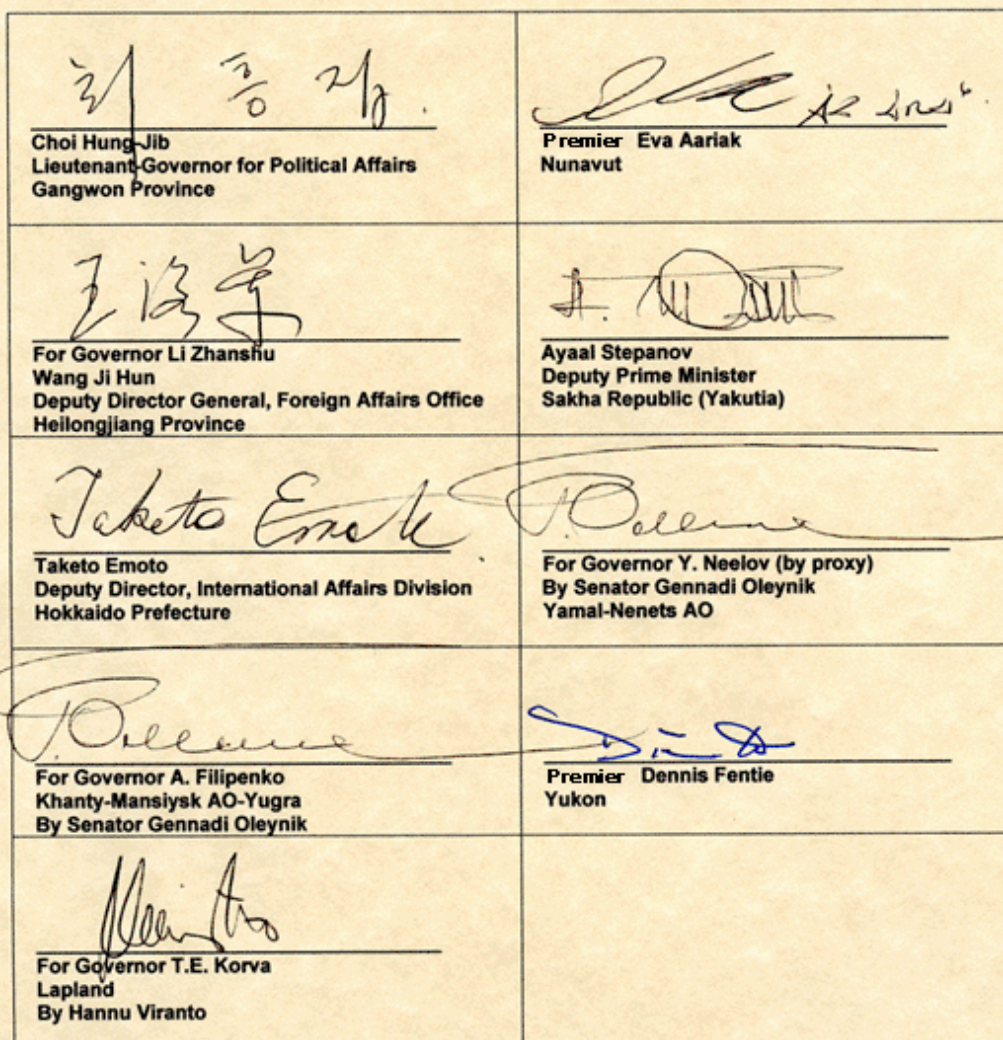 최 흥 집
Choi Hung-Jib
Lieutenant-Governor for Political Affairs
Gangwon Province
Premier Eva Aariak
Nunavut
王
For Governor Li Zhanshu
Wang Ji Hun
Deputy Director General, Foreign Affairs Office
Heilongjiang Province
Ayaal Stepanov
Deputy Prime Minister
Sakha Republic (Yakutia)
Taketo Emoto
Taketo Emoto
Deputy Director, International Affairs Division
Hokkaido Prefecture
For Governor Y. Neelov (by proxy)
By Senator Gennadi Oleynik
Yamal-Nenets AO
For Governor A. Filipenko
Khanty-Mansiysk AO-Yugra
By Senator Gennadi Oleynik
Premier Dennis Fentie
Yukon
For Governor T.E. Korva
Lapland
By Hannu Viranto